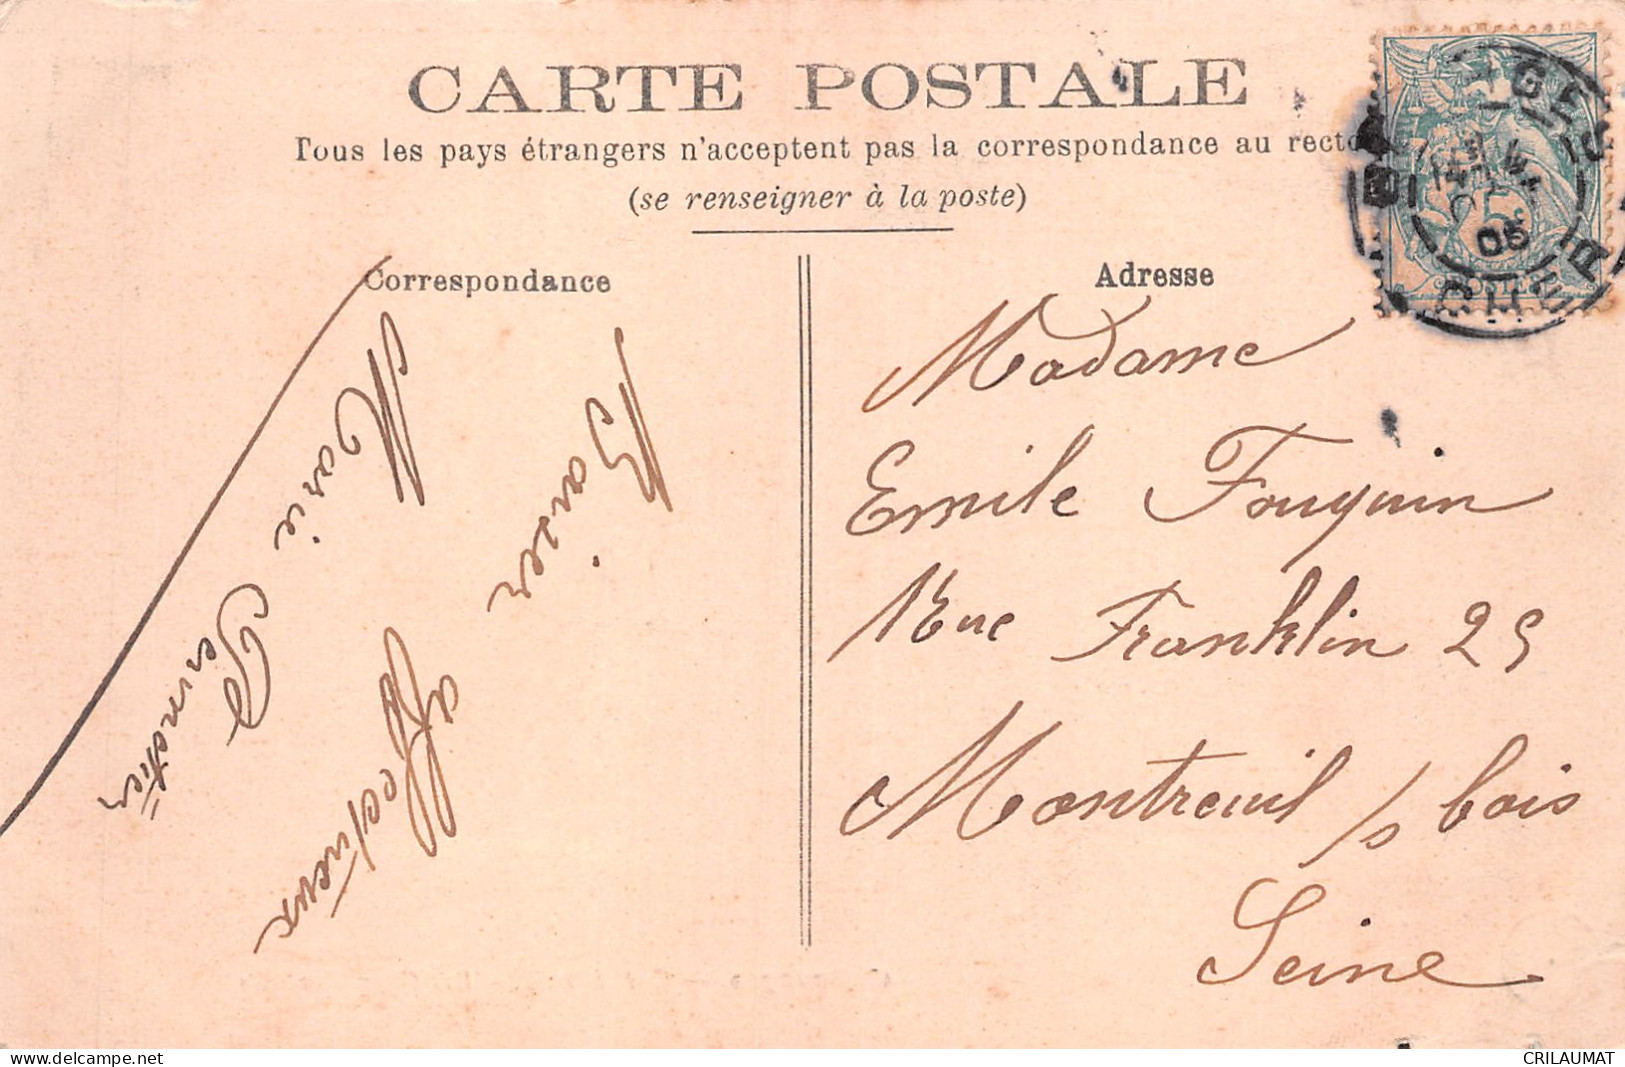 CARTE POSTALE
Tous les pays étrangers n'acceptent pas la correspondance au recto
(se renseigner à la poste)
Correspondance
Adresse
Baiser
Affectueux
Marie
Madame
Emile Fouquin
Rue Franklin 25
Montreuil s/ bois
Seine
BOURGES
CHER
05
5c
POSTES
www.delcampe.net
CRILAUMAT